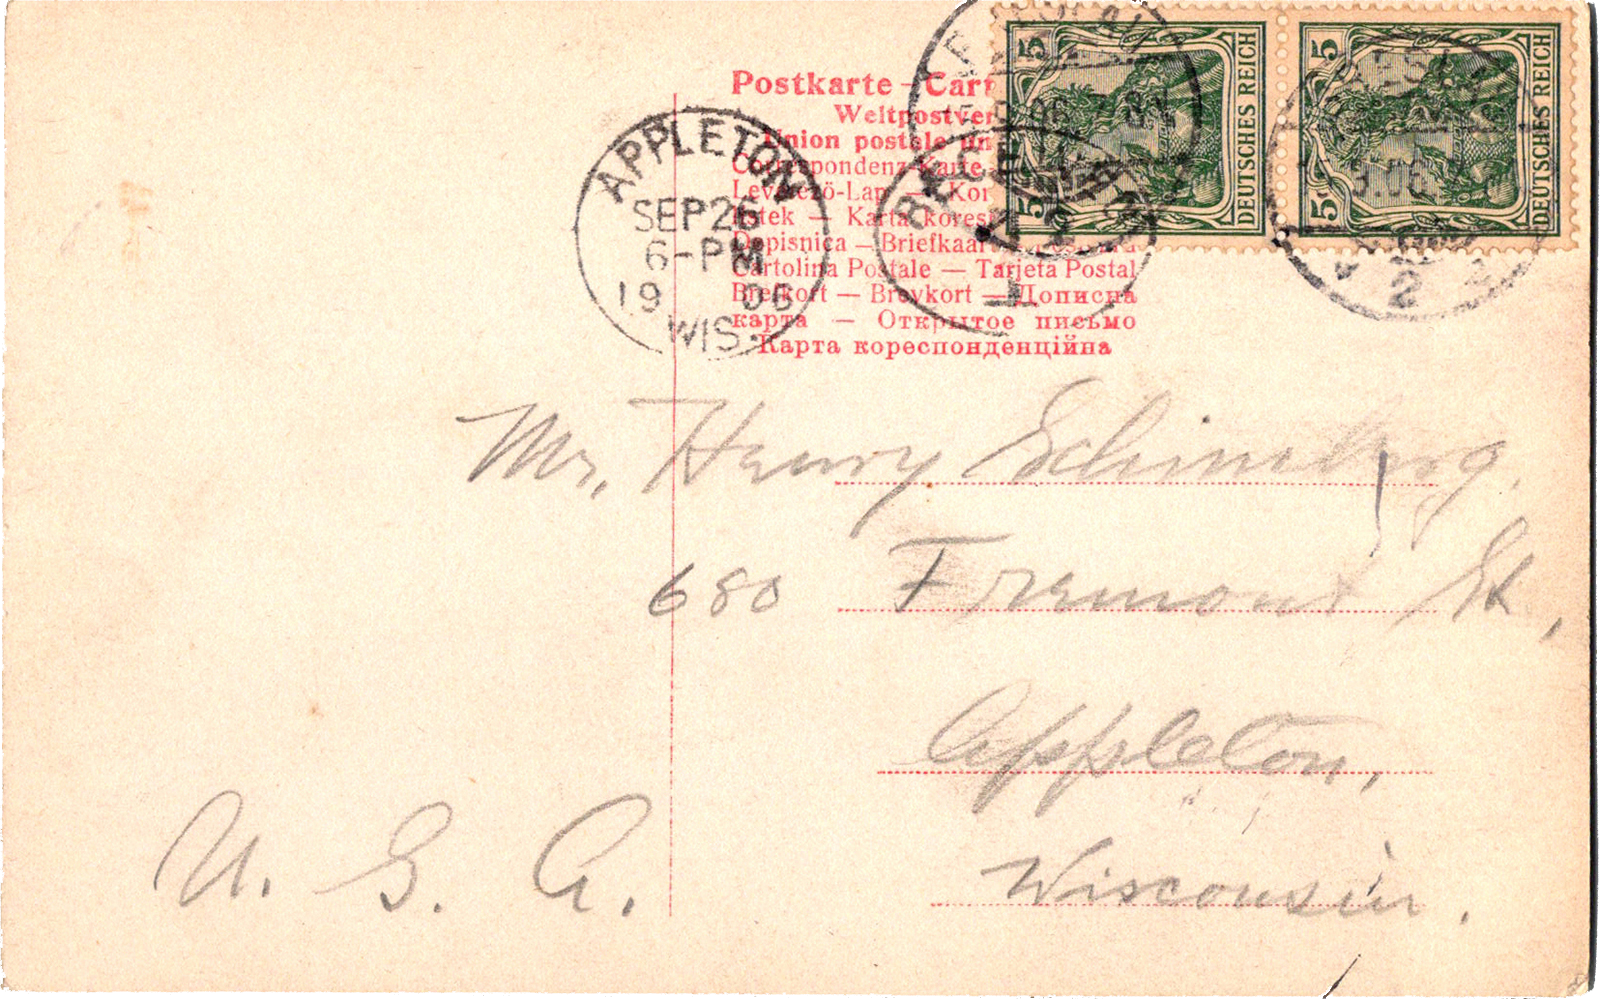 Postkarte – Cart
Weltpostver
Union postale un
Correspondenz-Karte
Levelező-Lap — Kor
listek — Karta koresp
Dopisnica — Briefkaart
Cartolina Postale — Tarjeta Postal
Brefkort — Brevkort — Дописна
карта — Открытое письмо
Карта кореспонденційна
APPLETON
SEP 26
6-PM
1906
WIS.
RECEIVED
5
DEUTSCHES REICH
5
5
DEUTSCHES REICH
5
2
Mr. Henry Schimberg.
680 Fremont St,
Appleton,
Wisconsin.
U. S. A.